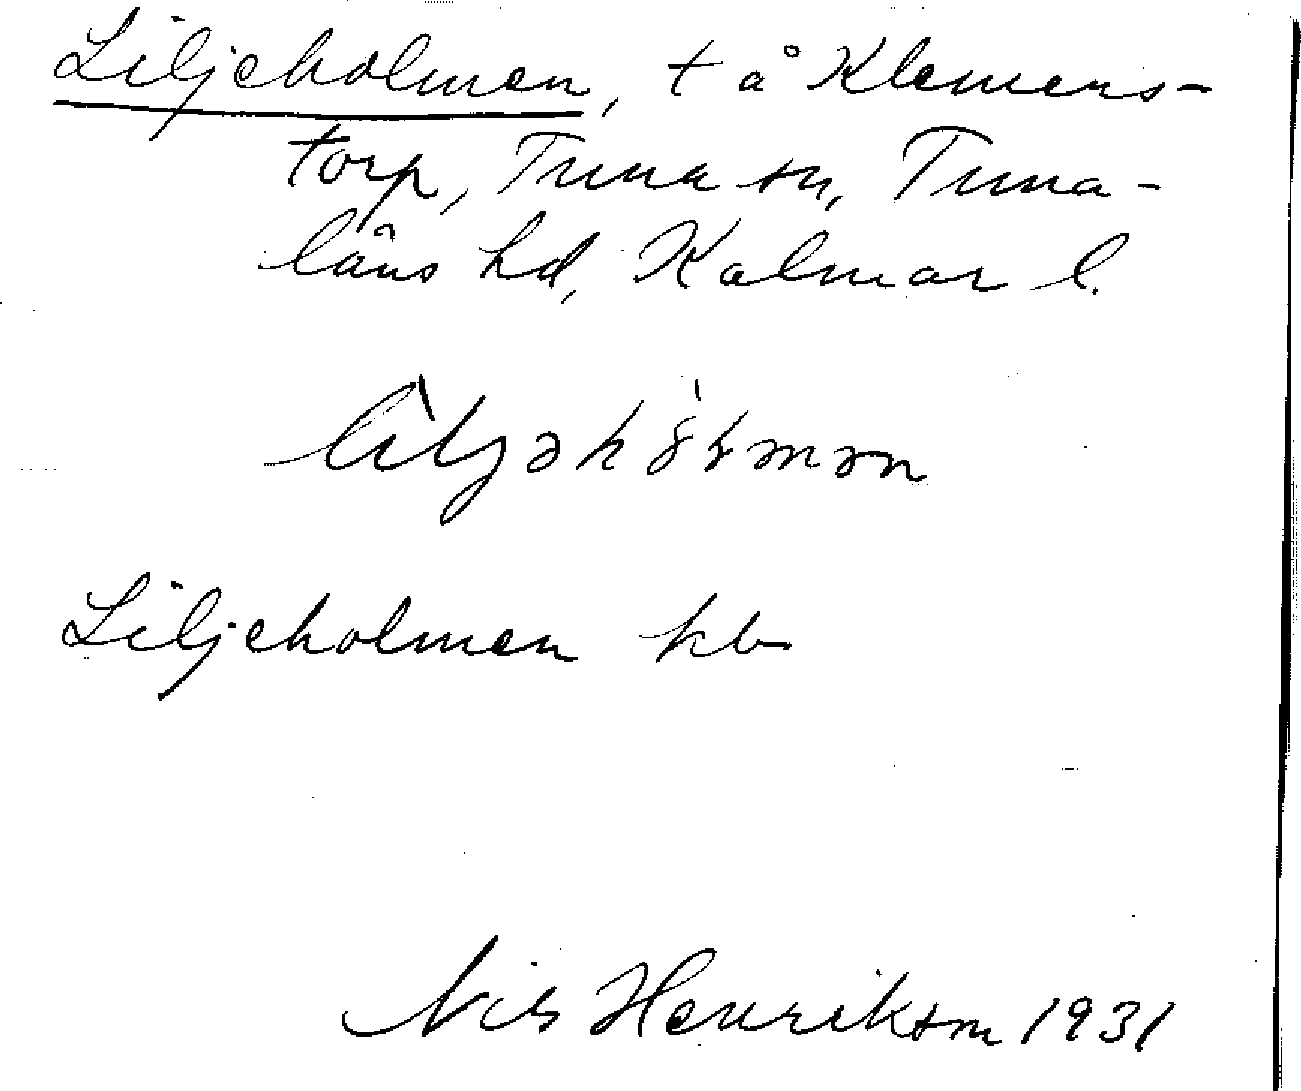 Liljeholmen, t å Klemens-
torp, Tuna sn, Tuna-
läns hd, Kalmar l.
Liljeholmen kb
Nils Henrikson 1931